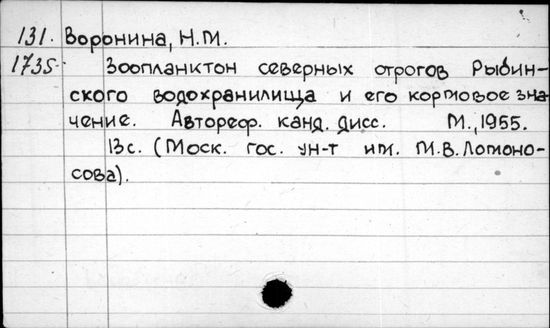 131. Воронина, Н.М.
1735. Зоопланктон северных отрогов Рыбин-
ского водохранилища и его кормовое зна-
чение. Автореф. канд. дисс. М., 1955.
13с. (Моск. гос. ун-т им. М.В. Ломоно-
сова).